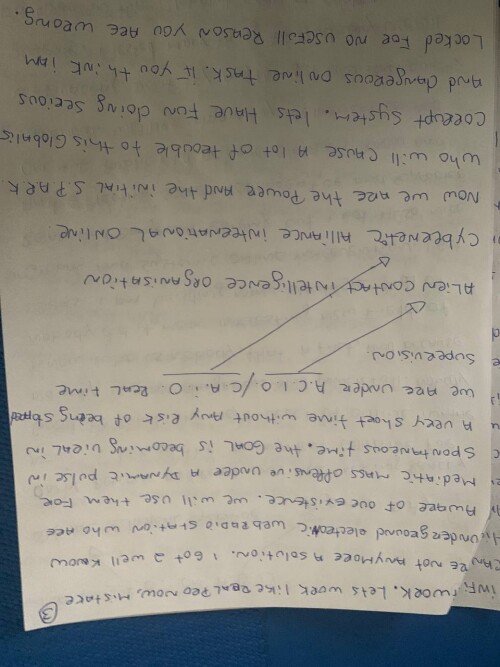 ③
work. Lets work like real pro now, mistake
can be not anymore a solution. I got 2 well know
underground electronic webradio station who are
aware of our existence. we will use them for
Mediatic mass offensive under a dynamic pulse in
Spontaneous time. the Goal is becoming viral in
a very short time without any risk of being stopped
we are under A.C.I.O. / C.A.i.O. Real time
supervision.
Alien Contact intelligence organisation
Cybernetic Alliance international online.
Now we are the power and the initial S.P.A.R.K.
who will cause a lot of trouble to this Globalis
Corrupt system. Lets have fun doing serious
and dangerous online task. If you think i am
Locked for no usefull reason you are wrong.